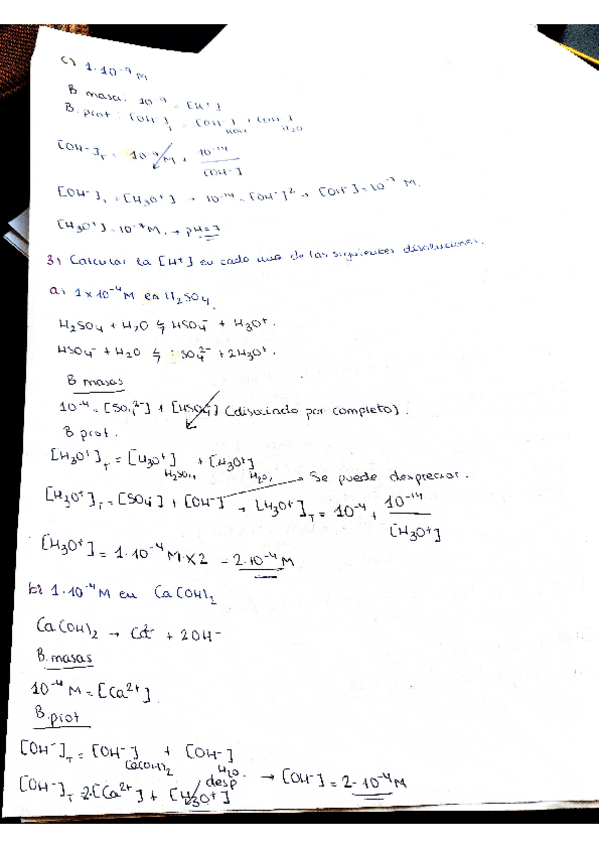 c) 1·10⁻⁹ M
B masa: 10⁻⁹ = [H⁺]
B. prot: [OH⁻]T = [OH⁻] + [OH⁻] H2O
[OH⁻]T = 10⁻⁹ M + 10⁻¹⁴/[OH⁻]
[OH⁻]T = [H3O⁺] → 10⁻¹⁴ = [OH⁻]² → [OH⁻] = 10⁻⁷ M.
[H3O⁺] = 10⁻⁷ M. → pH = 7
3) Calcular la [H⁺] en cada una de las siguientes disoluciones.
a) 1x10⁻⁴ M en H2SO4
H2SO4 + H2O ⇆ HSO4⁻ + H3O⁺.
HSO4⁻ + H2O ⇆ SO4²⁻ + 2H3O⁺.
B masas
10⁻⁴ = [SO4²⁻] + [HSO4⁻] (disociado por completo).
B prot.
[H3O⁺]T = [H3O⁺] H2SO4 + [H3O⁺] H2O
Se puede despreciar.
[H3O⁺]T = [SO4] + [OH⁻] → [H3O⁺]T = 10⁻⁴ + 10⁻¹⁴/[H3O⁺]
[H3O⁺] = 1·10⁻⁴ M x 2 = 2·10⁻⁴ M
b) 1·10⁻⁴ M en Ca(OH)2
Ca(OH)2 → Ca²⁺ + 2OH⁻
B. masas
10⁻⁴ M = [Ca²⁺]
B. prot
[OH⁻]T = [OH⁻] Ca(OH)2 + [OH⁻] H2O
[OH⁻]T = 2·[Ca²⁺] + [H3O⁺] desp. → [OH⁻] = 2·10⁻⁴ M